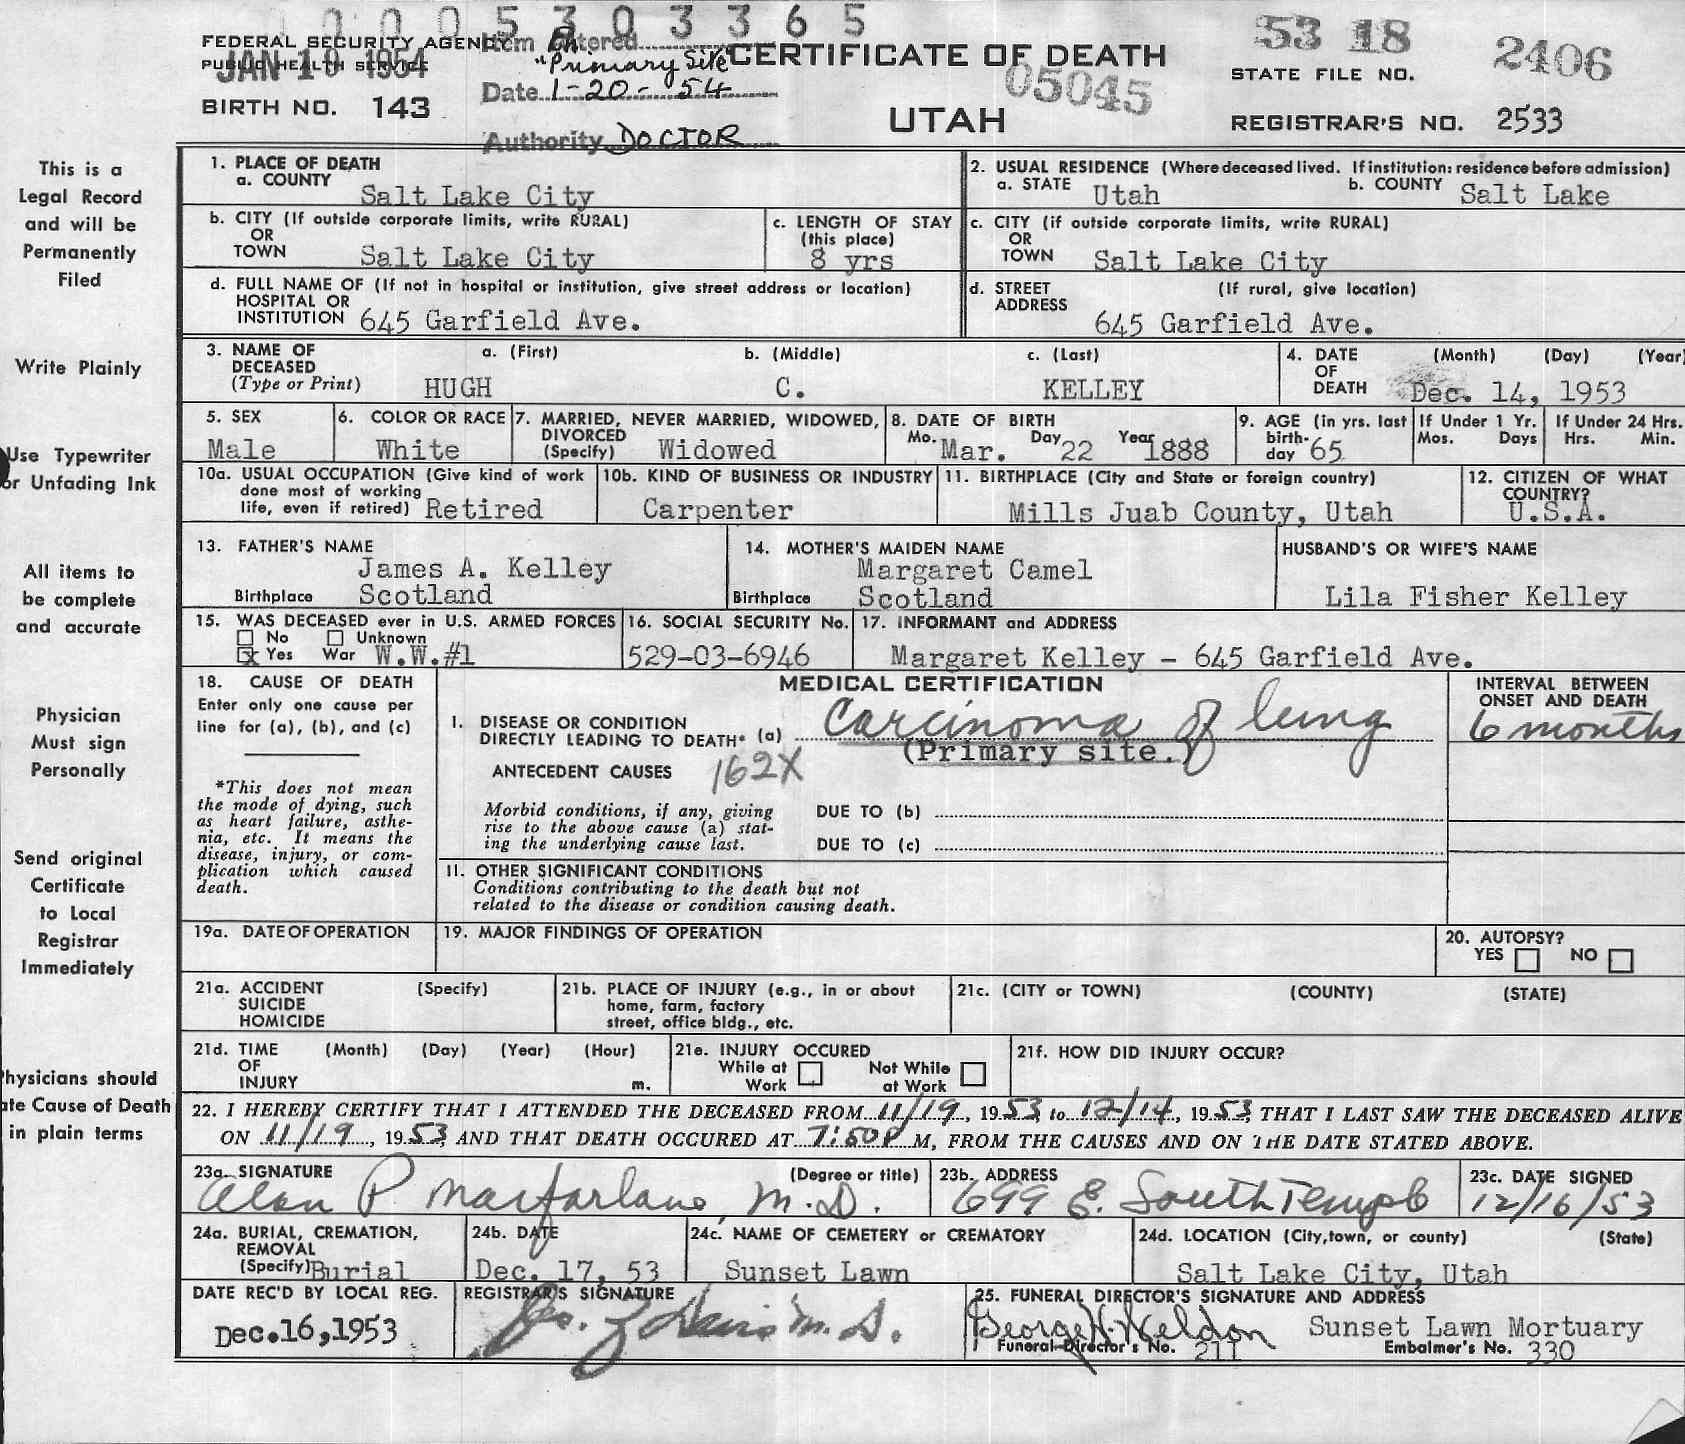 0 0 0 0 5 3 0 3 3 6 5
FEDERAL SECURITY AGENCY
PUBLIC HEALTH SERVICE
JAN 19 1954
BIRTH NO. 143
Item Entered
"Primary Site"
Date 1-20-54
Authority DOCTOR
CERTIFICATE OF DEATH
05045
UTAH
53 18
STATE FILE NO. 2406
REGISTRAR'S NO. 2533
This is a
Legal Record
and will be
Permanently
Filed
Write Plainly
Use Typewriter
or Unfading Ink
All items to
be complete
and accurate
Physician
Must sign
Personally
Send original
Certificate
to Local
Registrar
Immediately
Physicians should
ate Cause of Death
in plain terms
1. PLACE OF DEATH
a. COUNTY Salt Lake City
b. CITY (If outside corporate limits, write RURAL)
OR
TOWN Salt Lake City
c. LENGTH OF STAY
(this place)
8 yrs
d. FULL NAME OF (If not in hospital or institution, give street address or location)
HOSPITAL OR
INSTITUTION 645 Garfield Ave.
2. USUAL RESIDENCE (Where deceased lived. If institution: residence before admission)
a. STATE Utah b. COUNTY Salt Lake
c. CITY (if outside corporate limits, write RURAL)
OR
TOWN Salt Lake City
d. STREET (If rural, give location)
ADDRESS 645 Garfield Ave.
3. NAME OF a. (First) b. (Middle) c. (Last)
DECEASED
(Type or Print) HUGH C. KELLEY
4. DATE (Month) (Day) (Year)
OF
DEATH Dec. 14, 1953
5. SEX
Male
6. COLOR OR RACE
White
7. MARRIED, NEVER MARRIED, WIDOWED,
DIVORCED
(Specify) Widowed
8. DATE OF BIRTH
Mo. Mar. Day 22 Year 1888
9. AGE (in yrs. last
birth-
day 65
If Under 1 Yr.
Mos. Days
If Under 24 Hrs.
Hrs. Min.
10a. USUAL OCCUPATION (Give kind of work
done most of working
life, even if retired) Retired
10b. KIND OF BUSINESS OR INDUSTRY
Carpenter
11. BIRTHPLACE (City and State or foreign country)
Mills Juab County, Utah
12. CITIZEN OF WHAT
COUNTRY?
U.S.A.
13. FATHER'S NAME
James A. Kelley
Birthplace Scotland
14. MOTHER'S MAIDEN NAME
Margaret Camel
Birthplace Scotland
HUSBAND'S OR WIFE'S NAME
Lila Fisher Kelley
15. WAS DECEASED ever in U.S. ARMED FORCES
No Unknown
x Yes War W.W.#1
16. SOCIAL SECURITY No.
529-03-6946
17. INFORMANT and ADDRESS
Margaret Kelley - 645 Garfield Ave.
18. CAUSE OF DEATH
Enter only one cause per
line for (a), (b), and (c)
*This does not mean
the mode of dying, such
as heart failure, asthe-
nia, etc. It means the
disease, injury, or com-
plication which caused
death.
MEDICAL CERTIFICATION
I. DISEASE OR CONDITION
DIRECTLY LEADING TO DEATH* (a) Carcinoma of lung
(Primary site.)
ANTECEDENT CAUSES 162X
Morbid conditions, if any, giving
rise to the above cause (a) stat-
ing the underlying cause last.
DUE TO (b)
DUE TO (c)
INTERVAL BETWEEN
ONSET AND DEATH
6 months
II. OTHER SIGNIFICANT CONDITIONS
Conditions contributing to the death but not
related to the disease or condition causing death.
19a. DATE OF OPERATION
19. MAJOR FINDINGS OF OPERATION
20. AUTOPSY?
YES NO
21a. ACCIDENT (Specify)
SUICIDE
HOMICIDE
21b. PLACE OF INJURY (e.g., in or about
home, farm, factory
street, office bldg., etc.
21c. (CITY or TOWN) (COUNTY) (STATE)
21d. TIME (Month) (Day) (Year) (Hour)
OF
INJURY m.
21e. INJURY OCCURED
While at Not While
Work at Work
21f. HOW DID INJURY OCCUR?
22. I HEREBY CERTIFY THAT I ATTENDED THE DECEASED FROM 11/19, 1953, to 12/14, 1953, THAT I LAST SAW THE DECEASED ALIVE
ON 11/19, 1953, AND THAT DEATH OCCURED AT 7:50P M, FROM THE CAUSES AND ON THE DATE STATED ABOVE.
23a. SIGNATURE (Degree or title)
Alan P Macfarlane, M.D.
23b. ADDRESS
699 E. South Temple
23c. DATE SIGNED
12/16/53
24a. BURIAL, CREMATION,
REMOVAL
(Specify) Burial
24b. DATE
Dec. 17, 53
24c. NAME OF CEMETERY or CREMATORY
Sunset Lawn
24d. LOCATION (City,town, or county) (State)
Salt Lake City, Utah
DATE REC'D BY LOCAL REG.
Dec.16,1953
REGISTRAR'S SIGNATURE
M. D.
25. FUNERAL DIRECTOR'S SIGNATURE AND ADDRESS
George W. Weldon Sunset Lawn Mortuary
Funeral Director's No. 211 Embalmer's No. 330